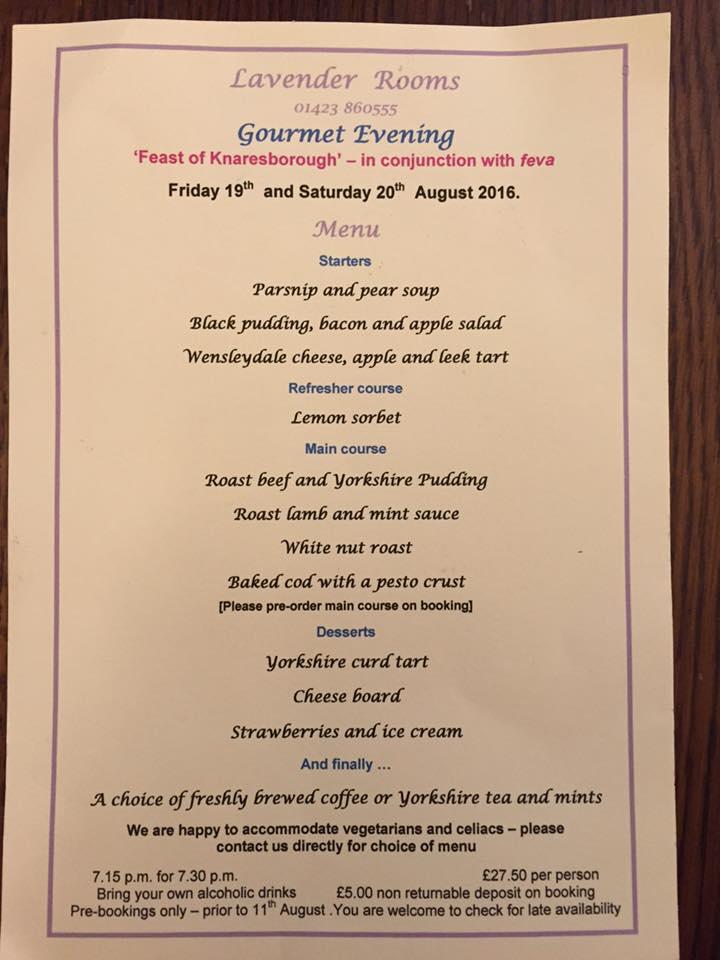 Lavender Rooms
01423 860555
Gourmet Evening
'Feast of Knaresborough' – in conjunction with feva
Friday 19th and Saturday 20th August 2016.
Menu
Starters
Parsnip and pear soup
Black pudding, bacon and apple salad
Wensleydale cheese, apple and leek tart
Refresher course
Lemon sorbet
Main course
Roast beef and Yorkshire Pudding
Roast lamb and mint sauce
White nut roast
Baked cod with a pesto crust
[Please pre-order main course on booking]
Desserts
Yorkshire curd tart
Cheese board
Strawberries and ice cream
And finally ...
A choice of freshly brewed coffee or Yorkshire tea and mints
We are happy to accommodate vegetarians and celiacs – please
contact us directly for choice of menu
7.15 p.m. for 7.30 p.m. £27.50 per person
Bring your own alcoholic drinks £5.00 non returnable deposit on booking
Pre-bookings only – prior to 11th August .You are welcome to check for late availability